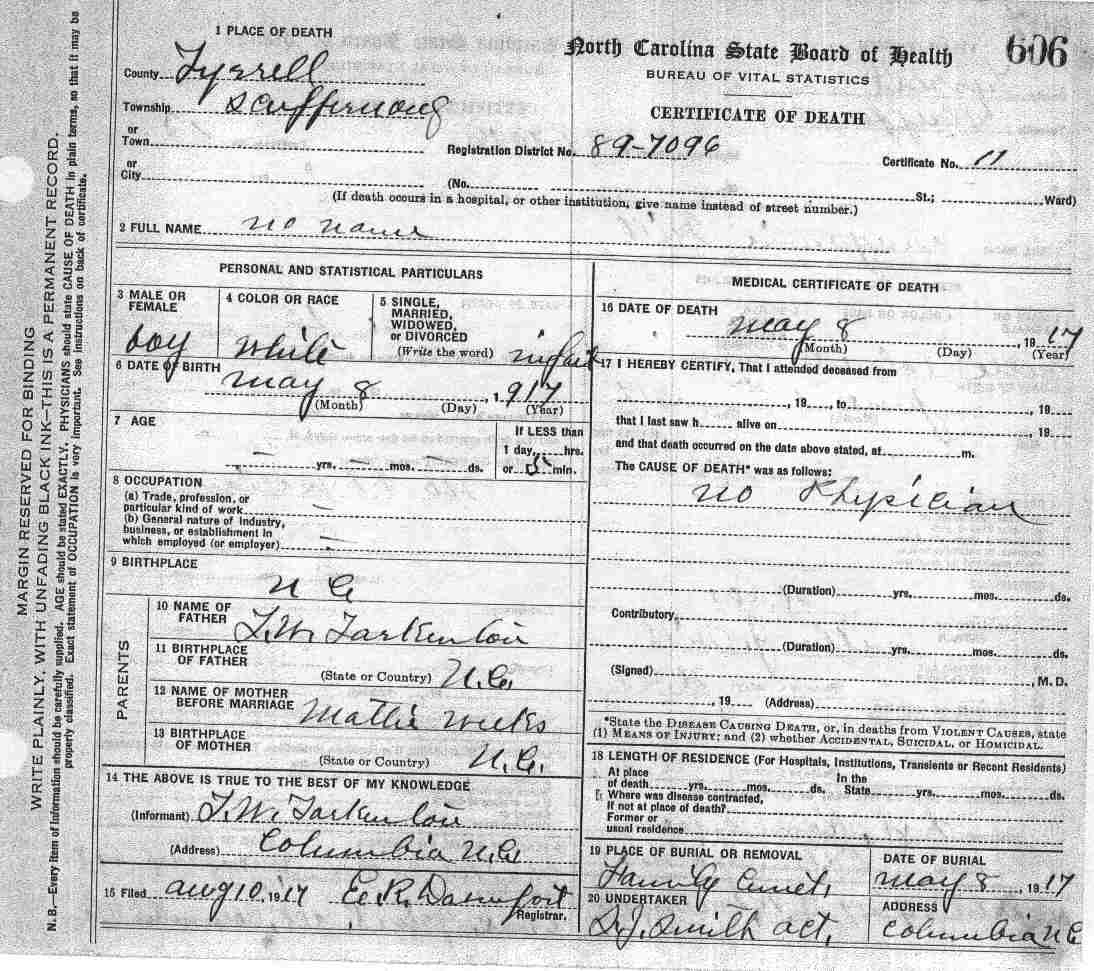 MARGIN RESERVED FOR BINDING
WRITE PLAINLY, WITH UNFADING BLACK INK—THIS IS A PERMANENT RECORD.
N. B.—Every item of information should be carefully supplied. AGE should be stated EXACTLY. PHYSICIANS should state CAUSE OF DEATH in plain terms, so that it may be
properly classified. Exact statement of OCCUPATION is very important. See instructions on back of certificate.
1 PLACE OF DEATH
North Carolina State Board of Health 606
BUREAU OF VITAL STATISTICS
CERTIFICATE OF DEATH
County Tyrrell
Township Scuppernong
or
Town
Registration District No. 89-7096 Certificate No. 11
or
City (No. St.; Ward)
(If death occurs in a hospital, or other institution, give name instead of street number.)
2 FULL NAME no name
PERSONAL AND STATISTICAL PARTICULARS
3 MALE OR FEMALE boy
4 COLOR OR RACE white
5 SINGLE, MARRIED, WIDOWED, or DIVORCED
(Write the word) infant
6 DATE OF BIRTH may 8, 1917
(Month) (Day) (Year)
7 AGE
If LESS than
1 day, hrs.
— yrs. — mos. — ds. or 5 min.
8 OCCUPATION
(a) Trade, profession, or
particular kind of work —
(b) General nature of industry,
business, or establishment in
which employed (or employer) —
9 BIRTHPLACE
N C
PARENTS
10 NAME OF FATHER T. W. Tarkenton
11 BIRTHPLACE OF FATHER
(State or Country) N. C.
12 NAME OF MOTHER BEFORE MARRIAGE Mattie Weeks
13 BIRTHPLACE OF MOTHER
(State or Country) N. C.
14 THE ABOVE IS TRUE TO THE BEST OF MY KNOWLEDGE
(Informant) T. W. Tarkenton
(Address) Columbia N C
15 Filed Aug 10, 1917 E. R. Davenport
Registrar.
MEDICAL CERTIFICATE OF DEATH
16 DATE OF DEATH may 8, 1917
(Month) (Day) (Year)
17 I HEREBY CERTIFY, That I attended deceased from
, 19 , to , 19
that I last saw h alive on , 19
and that death occurred on the date above stated, at m.
The CAUSE OF DEATH* was as follows:
no Physician
(Duration) yrs. mos. ds.
Contributory
(Duration) yrs. mos. ds.
(Signed) , M. D.
, 19 (Address)
*State the DISEASE CAUSING DEATH, or, in deaths from VIOLENT CAUSES, state
(1) MEANS OF INJURY; and (2) whether ACCIDENTAL, SUICIDAL, or HOMICIDAL.
18 LENGTH OF RESIDENCE (For Hospitals, Institutions, Transients or Recent Residents)
At place In the
of death yrs. mos. ds. State yrs. mos. ds.
Where was disease contracted,
If not at place of death?
Former or
usual residence
19 PLACE OF BURIAL OR REMOVAL
Family Cemet,
DATE OF BURIAL
may 8, 1917
20 UNDERTAKER
D. J. Smith act,
ADDRESS
Columbia N C